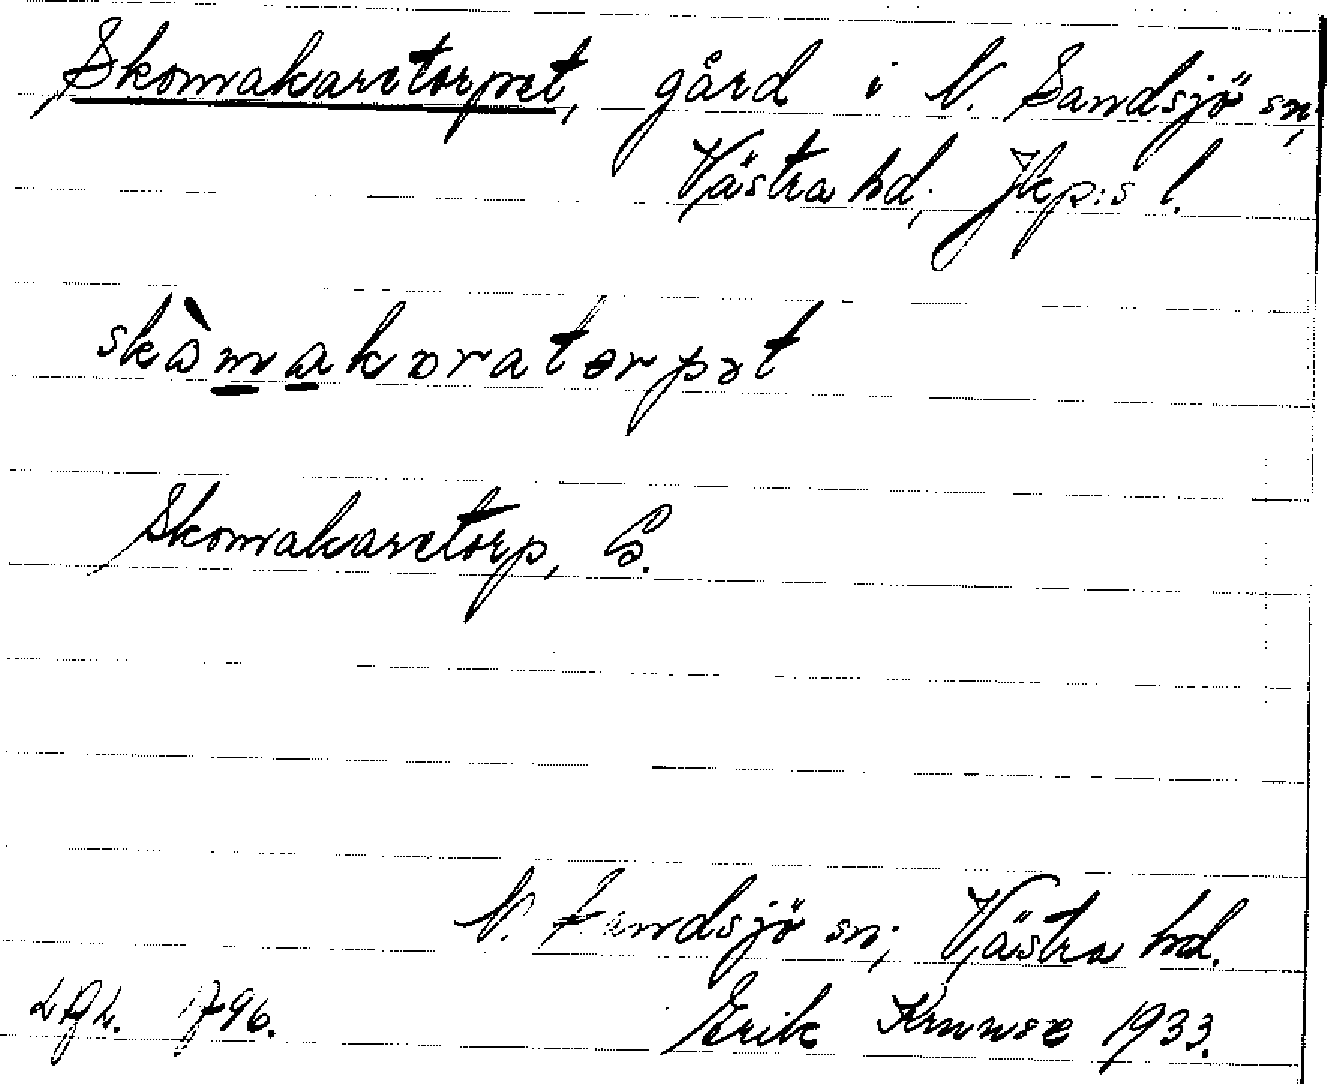 Skomakaretorpet, gård i N. Sandsjö sn,
Västra hd, Jkp:s l.
skòmakaratorpət
Skomakaretorp, G.
N. Sandsjö sn; Västra hd.
1796. Erik 1933.